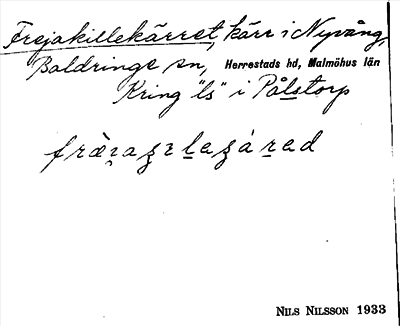 Frejakillekärret, kärr i Nyvång,
Baldringe sn, Herrestads hd, Malmöhus län
Kring "ls" i Pålstorp
NILS NILSSON 1933